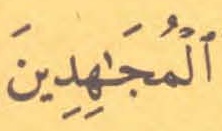 ٱلْمُجَـٰهِدِينَ